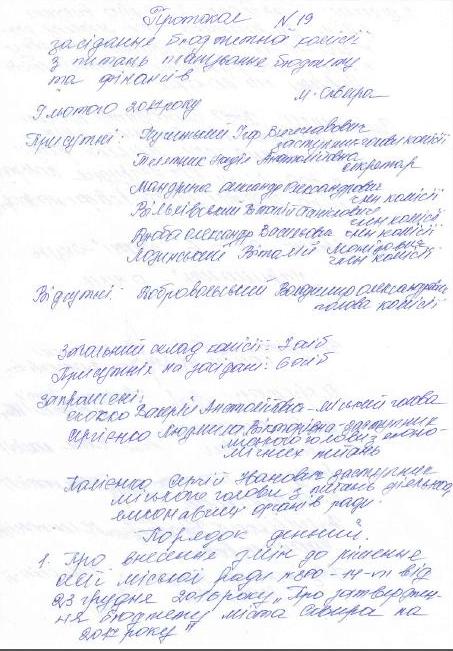 Протокол N 19
засідання бюджетної комісії
з питань планування бюджету
та фінансів
м. Сквира
9 лютого 2017 року
Присутні: Ігор
заступник голови комісії
Надія Анатоліївна
секретар
Мандрина Олександр Олександрович
член комісії
Вільхівський Віталій
член комісії
Олександр Васильович член комісії
Лодинський Віталій
член комісії
Відсутні: Добровольський Володимир Олександрович
голова комісії
Загальний склад комісії: 7 осіб
Присутніх на засідані: 6 осіб
Запрошені:
Скочко Валерій Анатолійович – міський голова
Людмила Вікторівна заступник
міського голови з еконо-
мічних питань
Сергій Іванович заступник
міського голови з питань діяльно
виконавчих органів ради.
Порядок денний.
1. Про внесення змін до рішення
сесії міської ради від
23 грудня 2016 року „Про затверджен-
ня бюджету міста Сквира на
2017 року"